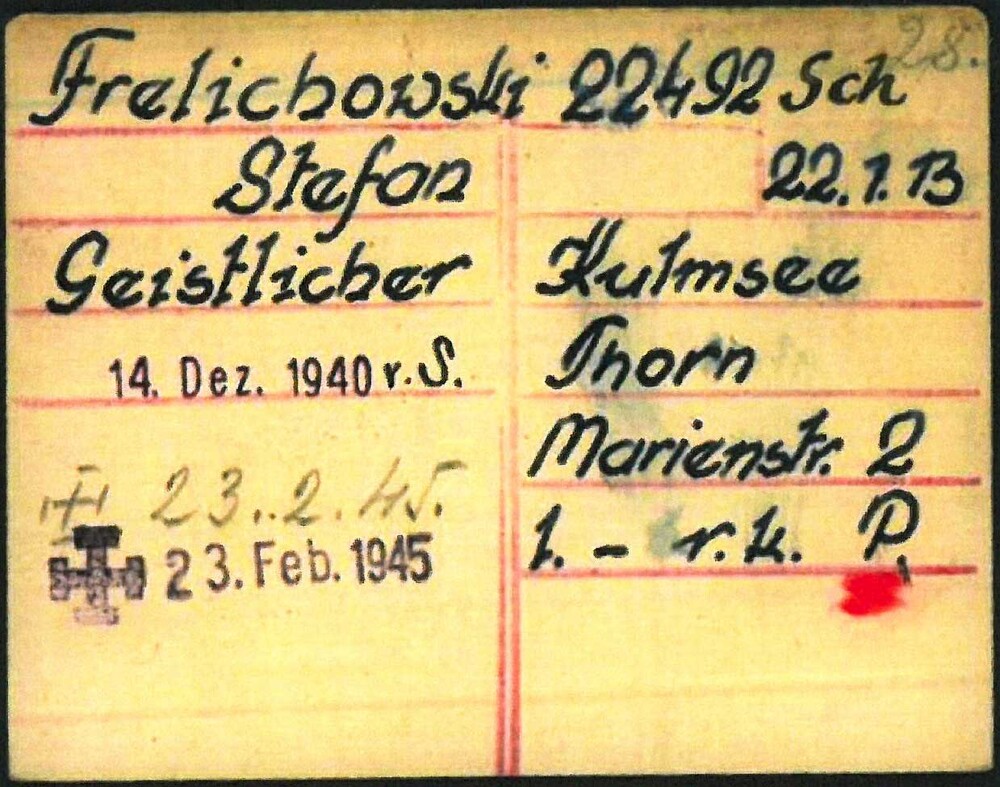 28.
Frelichowski 22492 Sch
Stefan 22.1.13
Geistlicher Kulmsee
14. Dez. 1940 r. S. Thorn
Marienstr. 2
23.2.45.
1. - r.k. P.
23. Feb. 1945